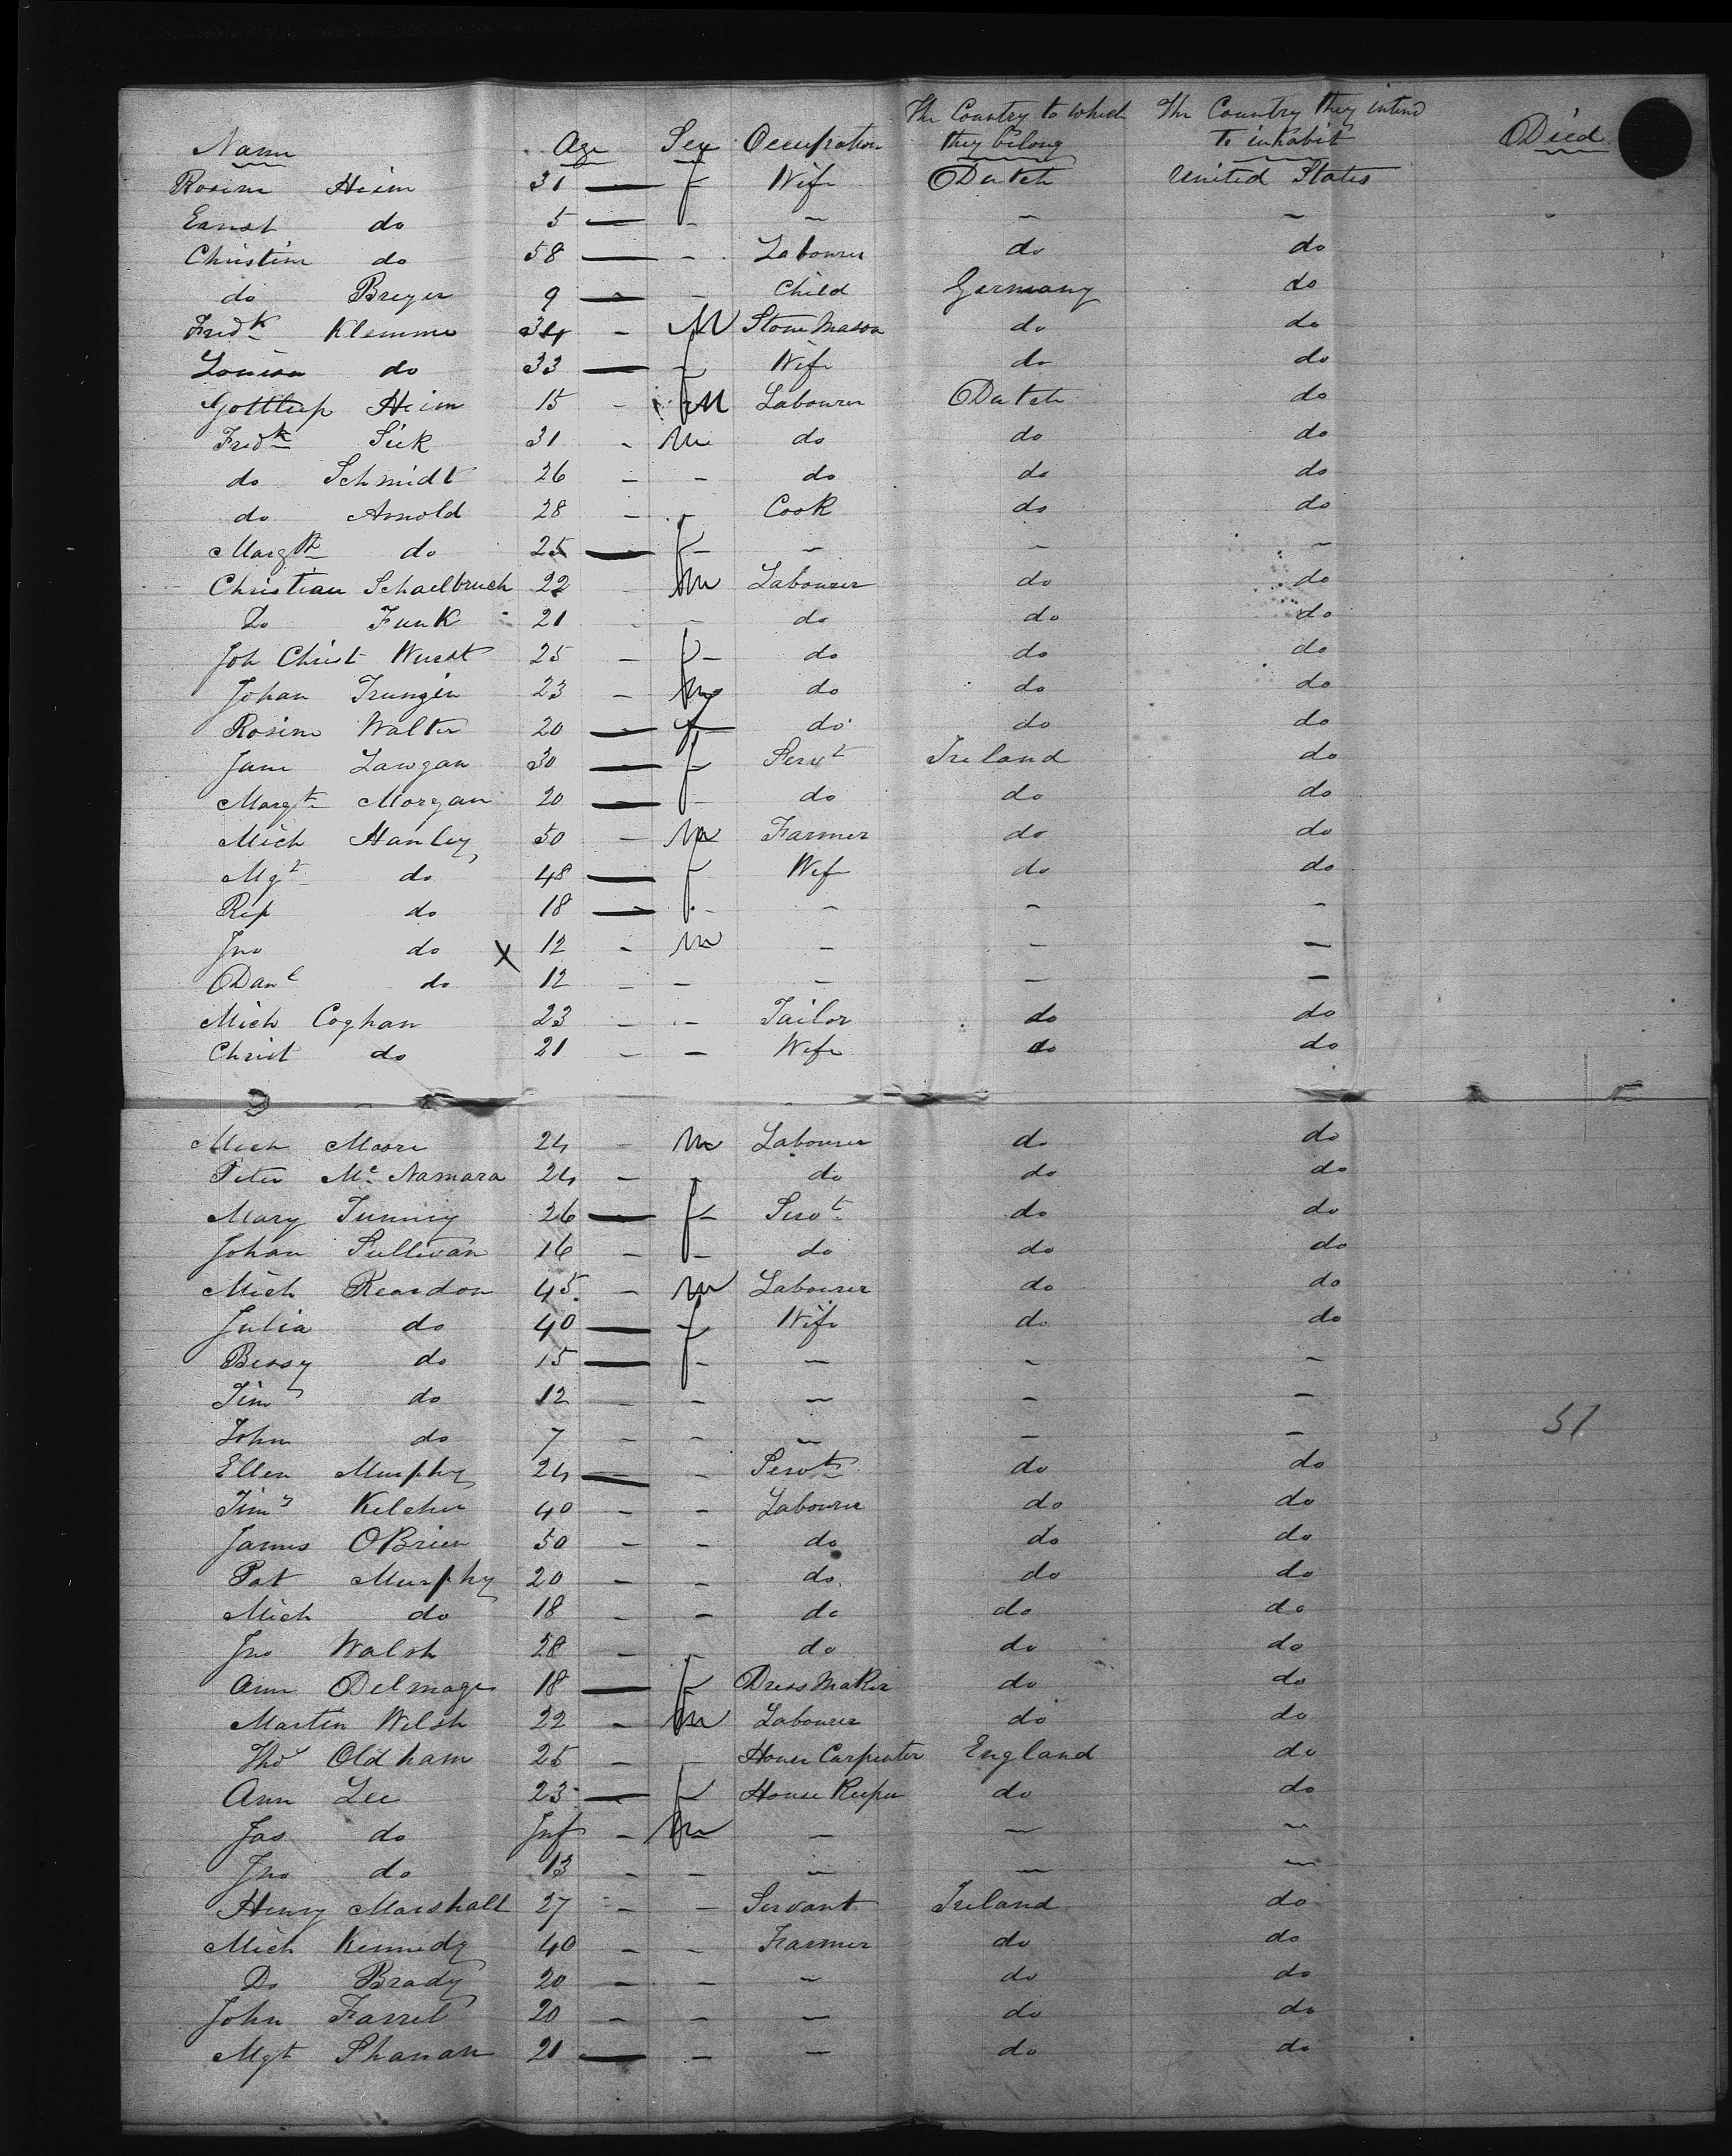 Name Age Sex Occupation The Country to which they belong The Country they intend to inhabit Died
Rosine Heim 31 — f Wife Dutch United States
Earnst do 5 — - - - -
Christine do 58 — - Labourer do do
do Breyer 9 — - Child Germany do
Fredk Klemme 34 - M Stone Mason do do
Louisa do 33 — f Wife do do
Gottleip Heim 15 - M Labourer Dutch do
Fredk Sick 31 - M do do do
do Schmidt 26 - - do do do
do Arnold 28 - - Cook do do
Margt do 25 — f - - -
Christian Schaelbruch 22 - M Labourer do do
Do Funk 21 - - do do do
Joh Christ Wurst 25 - f do do do
Johan Trungin 23 - M do do do
Rosine Walter 20 — f do do do
Jane Lawgan 30 — f Servt Ireland do
Margt Morgan 20 — f do do do
Mich Hanley 50 - M Farmer do do
Mgt do 48 — f Wife do do
Rep do 18 — f - - -
Jno do X 12 - M - - -
Danl do 12 - - - - -
Mich Coghan 23 - - Tailor do do
Christ do 21 - - Wife do do
Mich Moore 24 - M Labourer do do
Peter Mc Namara 24 - - do do do
Mary Tunniy 26 — f Servt do do
Johan Sullivan 16 - f do do do
Mich Reardon 45 - M Labourer do do
Julia do 40 — f Wife do do
Bessy do 15 — f - - -
Tim do 12 - - - - -
John do 7 - - - - -
51
Ellen Murphy 24 — - Servt do do
Timy Kelcher 40 - - Labourer do do
James OBrien 50 - - do do do
Pat Murphy 20 - - do do do
Mich do 18 - - do do do
Jno Walsh 28 - - do do do
Ann Delmage 18 — f Dress Maker do do
Martin Welsh 22 - M Labourer do do
Thos Oldham 25 - - House Carpenter England do
Ann Lee 23 — f House Keeper do do
Jas do Inf - M - - -
Jno do 13 - - - - -
Henry Marshall 27 - - Servant Ireland do
Mich Kennedy 40 - - Farmer do do
Do Brady 20 - - - do do
John Farrel 20 - - - do do
Mgt Shanan 21 — - - do do